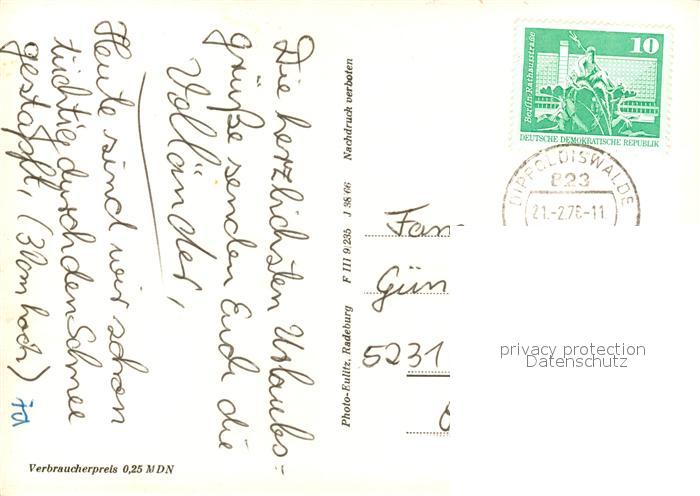 Die herzlichsten Urlaubs-
grüße senden Euch die
Volländer,
Heute sind wir schon
tüchtig durch den Schnee
gestapft, (30 cm hoch)
Verbraucherpreis 0,25 MDN
Photo-Eulitz, Radeburg F III 9/235 J 38/66 Nachdruck verboten
10
Berlin, Rathausstraße
DEUTSCHE DEMOKRATISCHE REPUBLIK
DIPPOLDISWALDE
823
21.-2.76-11
Fam
Gün
5231
privacy protection
Datenschutz